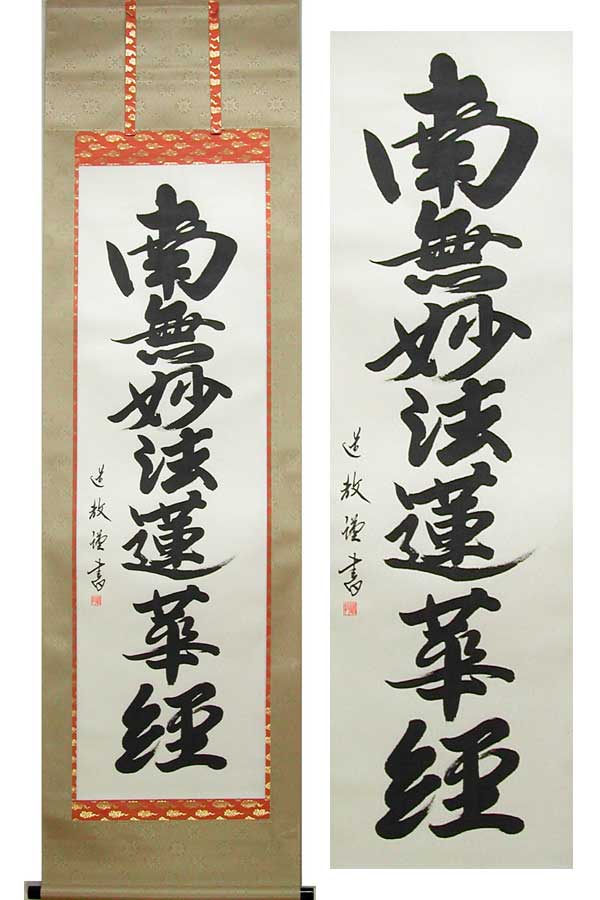 南無妙法蓮華経
道教謹書
南無妙法蓮華経
道教謹書